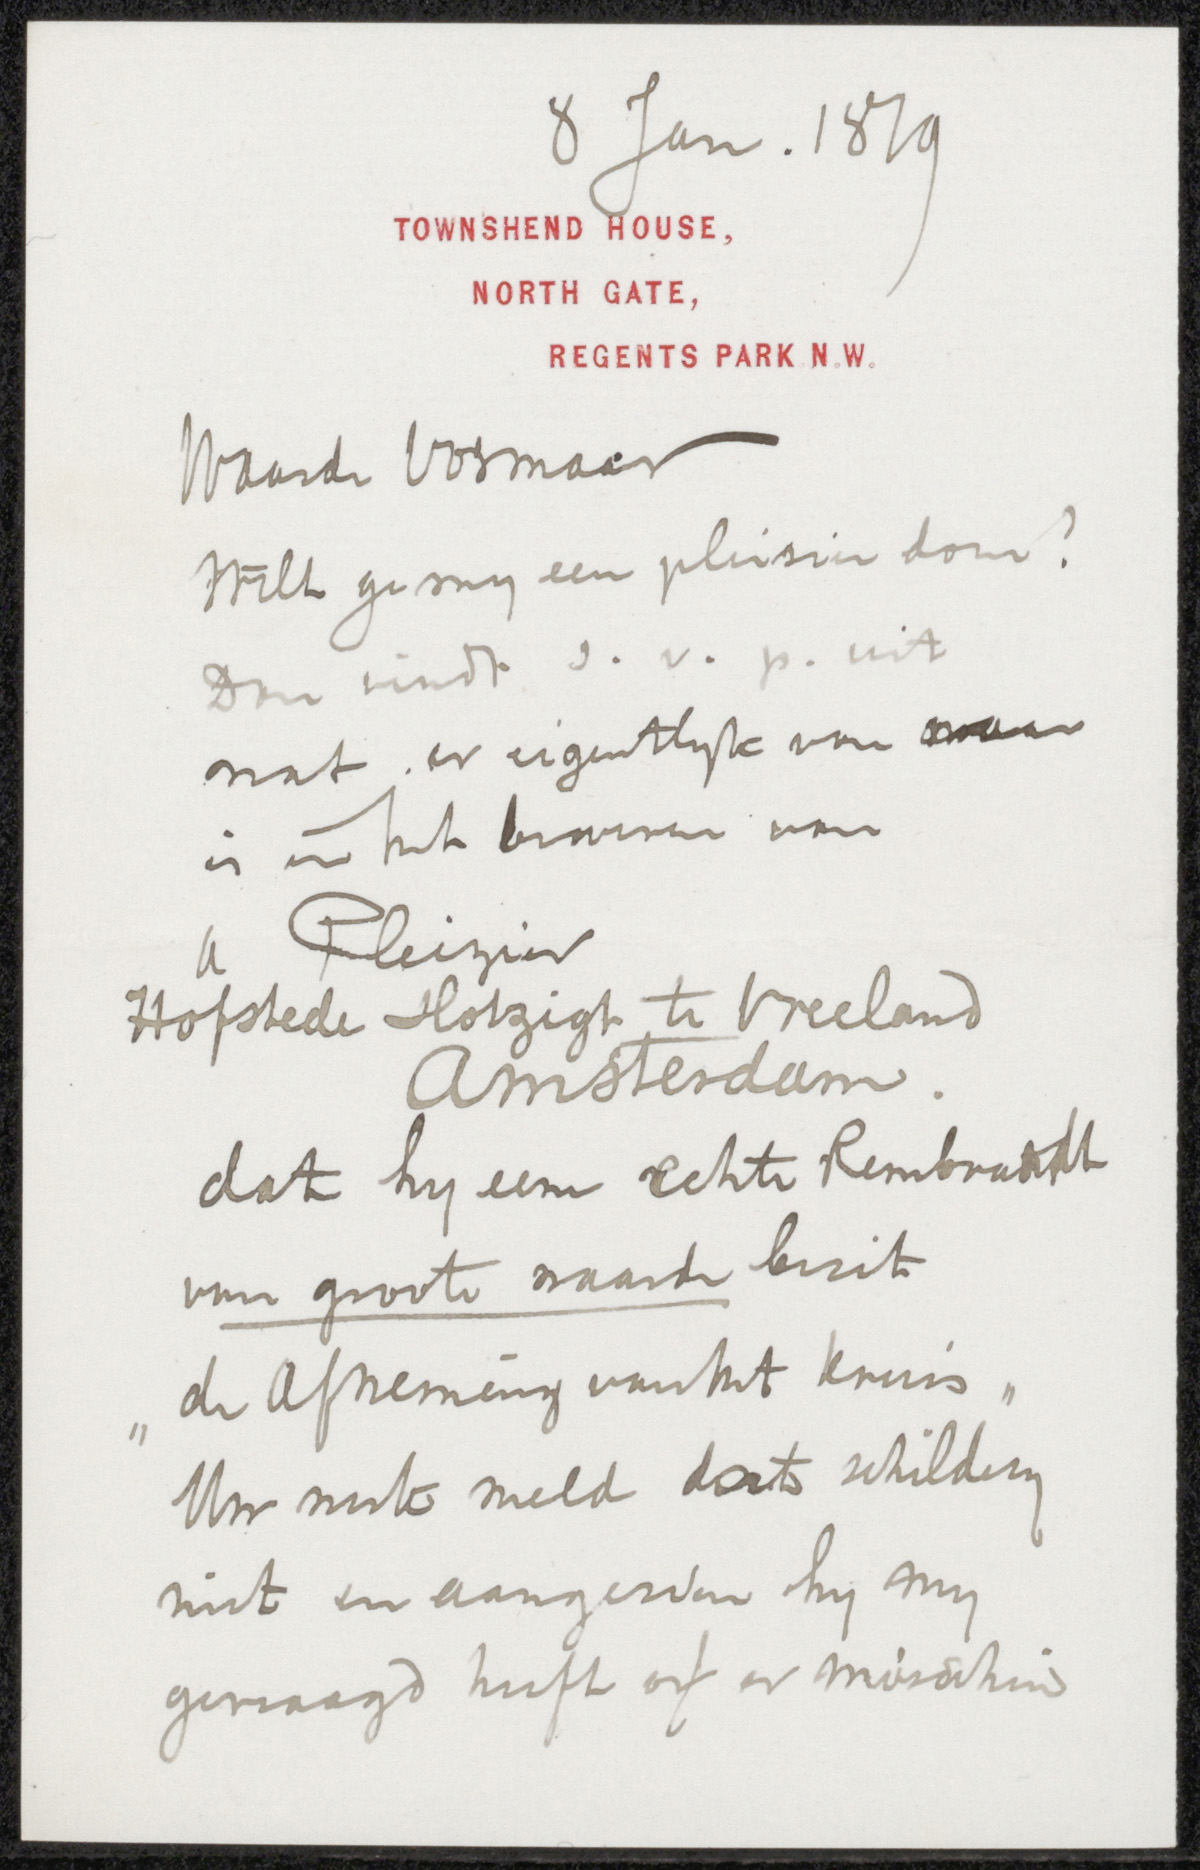 8 Jan. 1879
TOWNSHEND HOUSE,
NORTH GATE,
REGENTS PARK N.W.
Waarde Vosmaer
Wilt ge my een pleisier doen?
Dan vindt s. v. p. uit
wat er eigentlyk van waar
is in het beweren van
A Pleizier
Hofstede Slotzigt te Vreeland
Amsterdam.
dat hy een echte Rembrandt
van groote waarde bezit
"de Afneming van het Kruis"
Uw werk meld dat schildery
niet en aangezien hy my
gevraagd heeft of er misschien